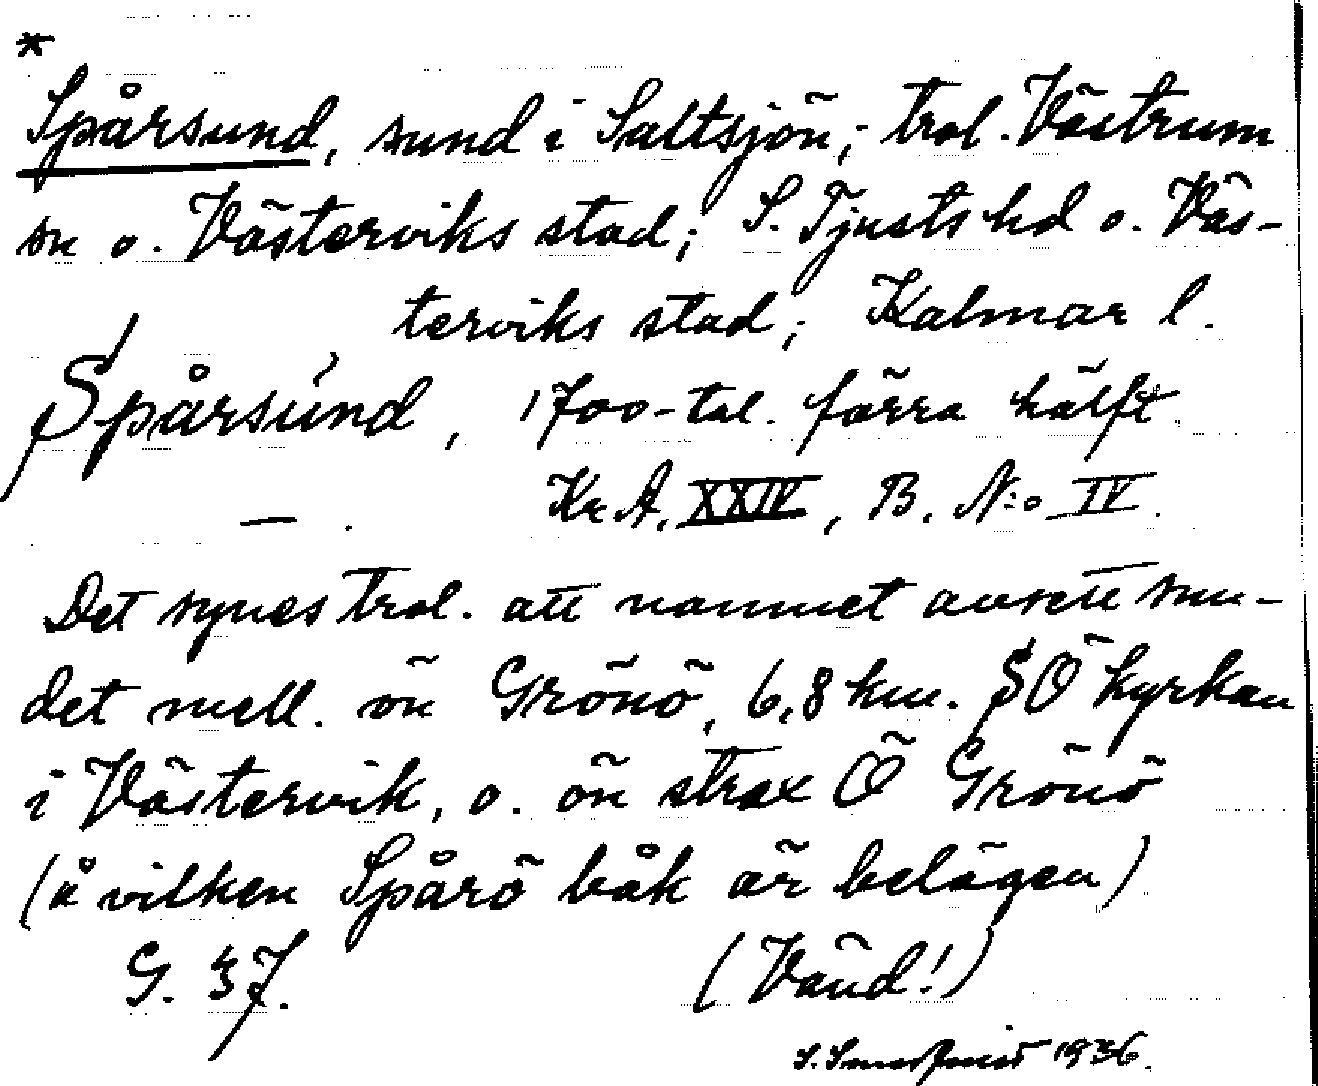 *
Spårsund, sund i Saltsjön; trol. Västrum
sn o. Västerviks stad; S. Tjusts hd o. Väs-
terviks stad; Kalmar l.
Spårsund, 1700-tal. förra hälft.
— . Kr. A. XXIV, B. N:o IV.
Det synes trol. att namnet avsett sun-
det mell. ön Grönö, 6,8 km. SO kyrkan
i Västervik, o. ön strax Ö Grönö
(å vilken Spårö båk är belägen)
G. 37. (Vänd!)
S. 1936.